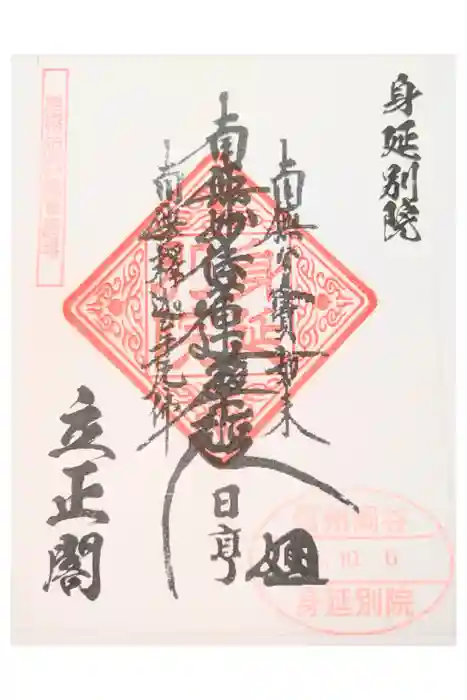 身延別院
南無多寳如来
南無妙法蓮華経
南無釋迦牟尼佛
日亨
立正閣
信州岡谷
10.6
身延別院